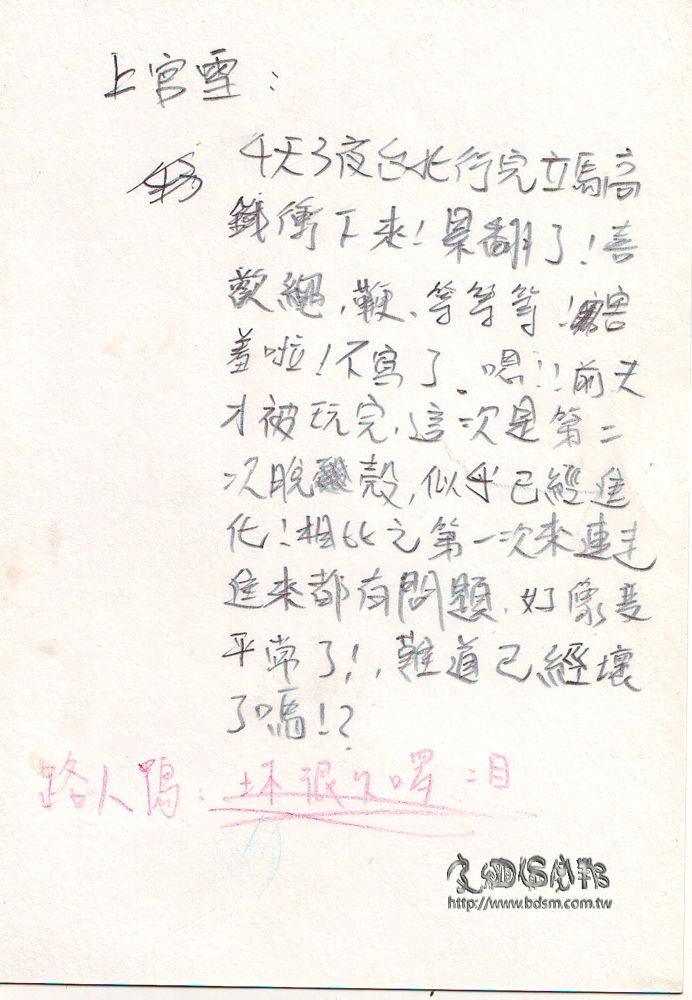 上官雪:
4天3夜台北行完立馬高
鐵衝下來!累翻了!喜
歡繩,鞭、等等等!害
羞啦!不寫了。嗯!!前天
才被玩完,這次是第二
次脫殼,似乎已經進
化!相比之第一次來連走
進來都有問題,好像變
平常了!,難道已經壞
了嗎!?
路人鴨:壞很久囉
http://www.bdsm.com.tw